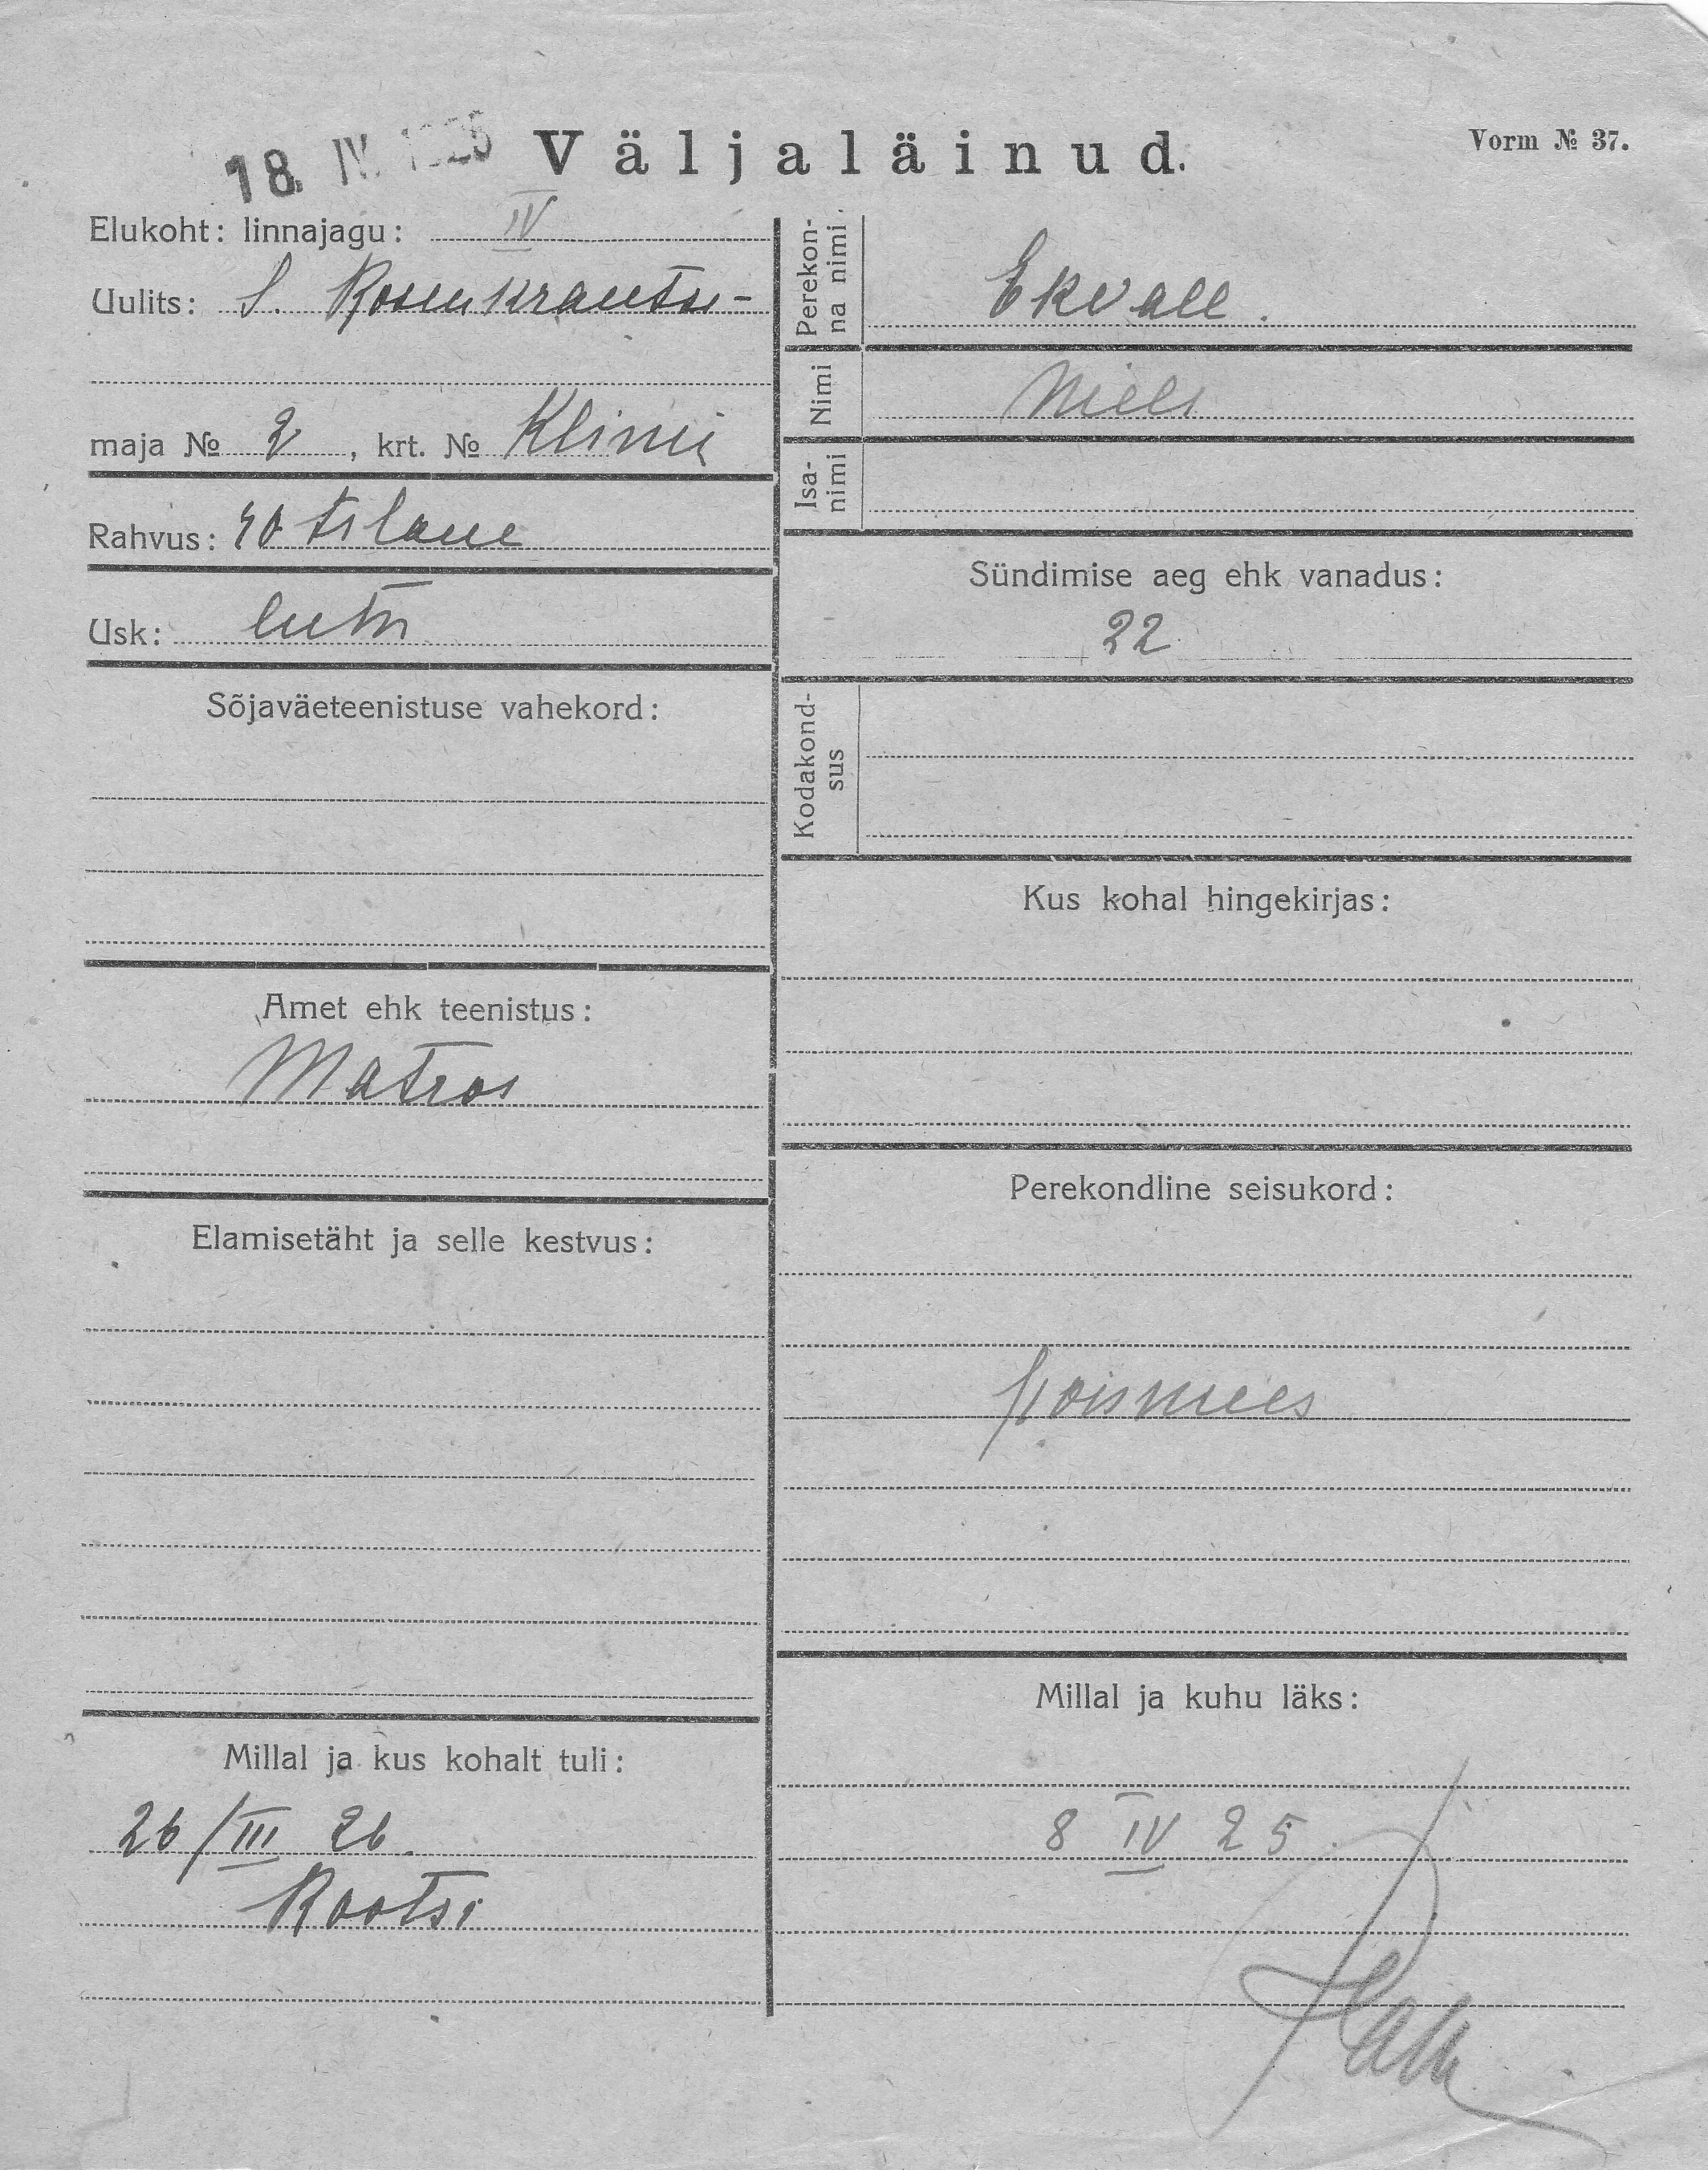 18. IV. 1925
Väljaläinud.
Vorm № 37.
Elukoht: linnajagu: IV
Uulits: S. Rosenkrantsi-
maja № 2, krt. № Klinik
Rahvus: rotslane
Usk: luth
Sõjaväeteenistuse vahekord:
Amet ehk teenistus:
Matros
Elamisetäht ja selle kestvus:
Millal ja kus kohalt tuli:
26/III 26.
Rootsi
Perekon-
na nimi.
Ekvall.
Nimi
Niels
Isa-
nimi
Sündimise aeg ehk vanadus:
22
Kodakond-
sus
Kus kohal hingekirjas:
Perekondline seisukord:
poismees
Millal ja kuhu läks:
8 IV 25.